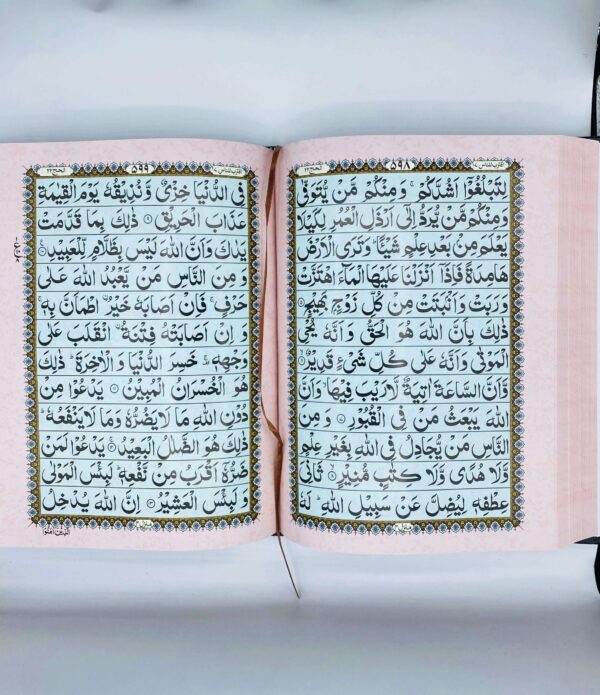 ۵۹۸
لِتَبْلُغُوْۤا اَشُدَّكُمْ ۚ وَمِنْكُمْ مَّنْ يُّتَوَفّٰى
وَمِنْكُمْ مَّنْ يُّرَدُّ اِلٰۤى اَرْذَلِ الْعُمُرِ لِكَيْلَا
يَعْلَمَ مِنْۢ بَعْدِ عِلْمٍ شَيْـًٔا ؕ وَتَرَى الْاَرْضَ
هَامِدَةً فَاِذَاۤ اَنْزَلْنَا عَلَيْهَا الْمَآءَ اهْتَزَّتْ
وَرَبَتْ وَاَنْۢبَتَتْ مِنْ كُلِّ زَوْجٍۭ بَهِيْجٍ
ذٰلِكَ بِاَنَّ اللّٰهَ هُوَ الْحَقُّ وَاَنَّهٗ يُحْيِ
الْمَوْتٰى وَاَنَّهٗ عَلٰى كُلِّ شَيْءٍ قَدِيْرٌ
وَّاَنَّ السَّاعَةَ اٰتِيَةٌ لَّا رَيْبَ فِيْهَا ۙ وَاَنَّ
اللّٰهَ يَبْعَثُ مَنْ فِى الْقُبُوْرِ وَ مِنَ
النَّاسِ مَنْ يُّجَادِلُ فِى اللّٰهِ بِغَيْرِ عِلْمٍ
وَّلَا هُدًى وَّلَا كِتٰبٍ مُّنِيْرٍ ۙ ثَانِيَ
عِطْفِهٖ لِيُضِلَّ عَنْ سَبِيْلِ اللّٰهِ ؕ لَهٗ
۵۹۹
فِى الدُّنْيَا خِزْيٌ وَّنُذِيْقُهٗ يَوْمَ الْقِيٰمَةِ
عَذَابَ الْحَرِيْقِ ذٰلِكَ بِمَا قَدَّمَتْ
يَدٰكَ وَاَنَّ اللّٰهَ لَيْسَ بِظَلَّامٍ لِّلْعَبِيْدِ
وَ مِنَ النَّاسِ مَنْ يَّعْبُدُ اللّٰهَ عَلٰى
حَرْفٍ ۚ فَاِنْ اَصَابَهٗ خَيْرُ اۨطْمَاَنَّ بِهٖ ۚ
وَ اِنْ اَصَابَتْهُ فِتْنَةُ اۨنْقَلَبَ عَلٰى
وَجْهِهٖ ۚ خَسِرَ الدُّنْيَا وَ الْاٰخِرَةَ ؕ ذٰلِكَ
هُوَ الْخُسْرَانُ الْمُبِيْنُ يَدْعُوْا مِنْ
دُوْنِ اللّٰهِ مَا لَا يَضُرُّهٗ وَمَا لَا يَنْفَعُهٗ ؕ
ذٰلِكَ هُوَ الضَّلٰلُ الْبَعِيْدُ يَدْعُوْا لَمَنْ
ضَرُّهٗۤ اَقْرَبُ مِنْ نَّفْعِهٖ ؕ لَبِئْسَ الْمَوْلٰى
وَ لَبِئْسَ الْعَشِيْرُ اِنَّ اللّٰهَ يُدْخِلُ